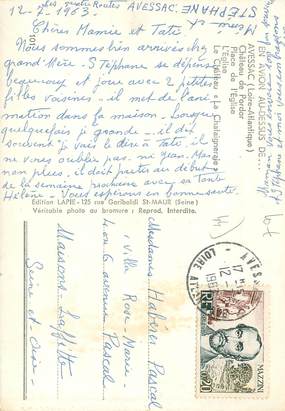 Les quatre Routes AVESSAC.
12-7-1963
Chères Mamie et Tata.
Nous sommes bien arrivés chez
grand Mère. Stéphane se dépense
beaucoup et joue avec 2 petites
filles voisines. il met de l'ani-
mation dans la maison. Lorsque
quelquefois je gronde - il dit
souvent "je vais le dire à Tata, il
ne vous oublie pas. ni Jean-Marc
non plus, il doit partir au début
de la semaine prochaine avec sa tante
Hélène. Vous espérons bonne santé.
Merci et
STEPHANE
101
EN AVION AU-DESSUS DE...
AVESSAC (Loire-Atlantique)
Place de l'Église
L'Église
Le Château "La Châtaigneraie"
Edition LAPIE - 125 rue Garibaldi St-MAUR (Seine)
Véritable photo au bromure : Reprod. Interdite.
Mesdames Hubert Pascal
Villa Rose-Marie
4 ou 6 avenue Pascal
Maisons-Laffitte
Seine et Oise
AVESSAC
17 H
12-7
1963
LOIRE ATL
MAZZINI
0,20